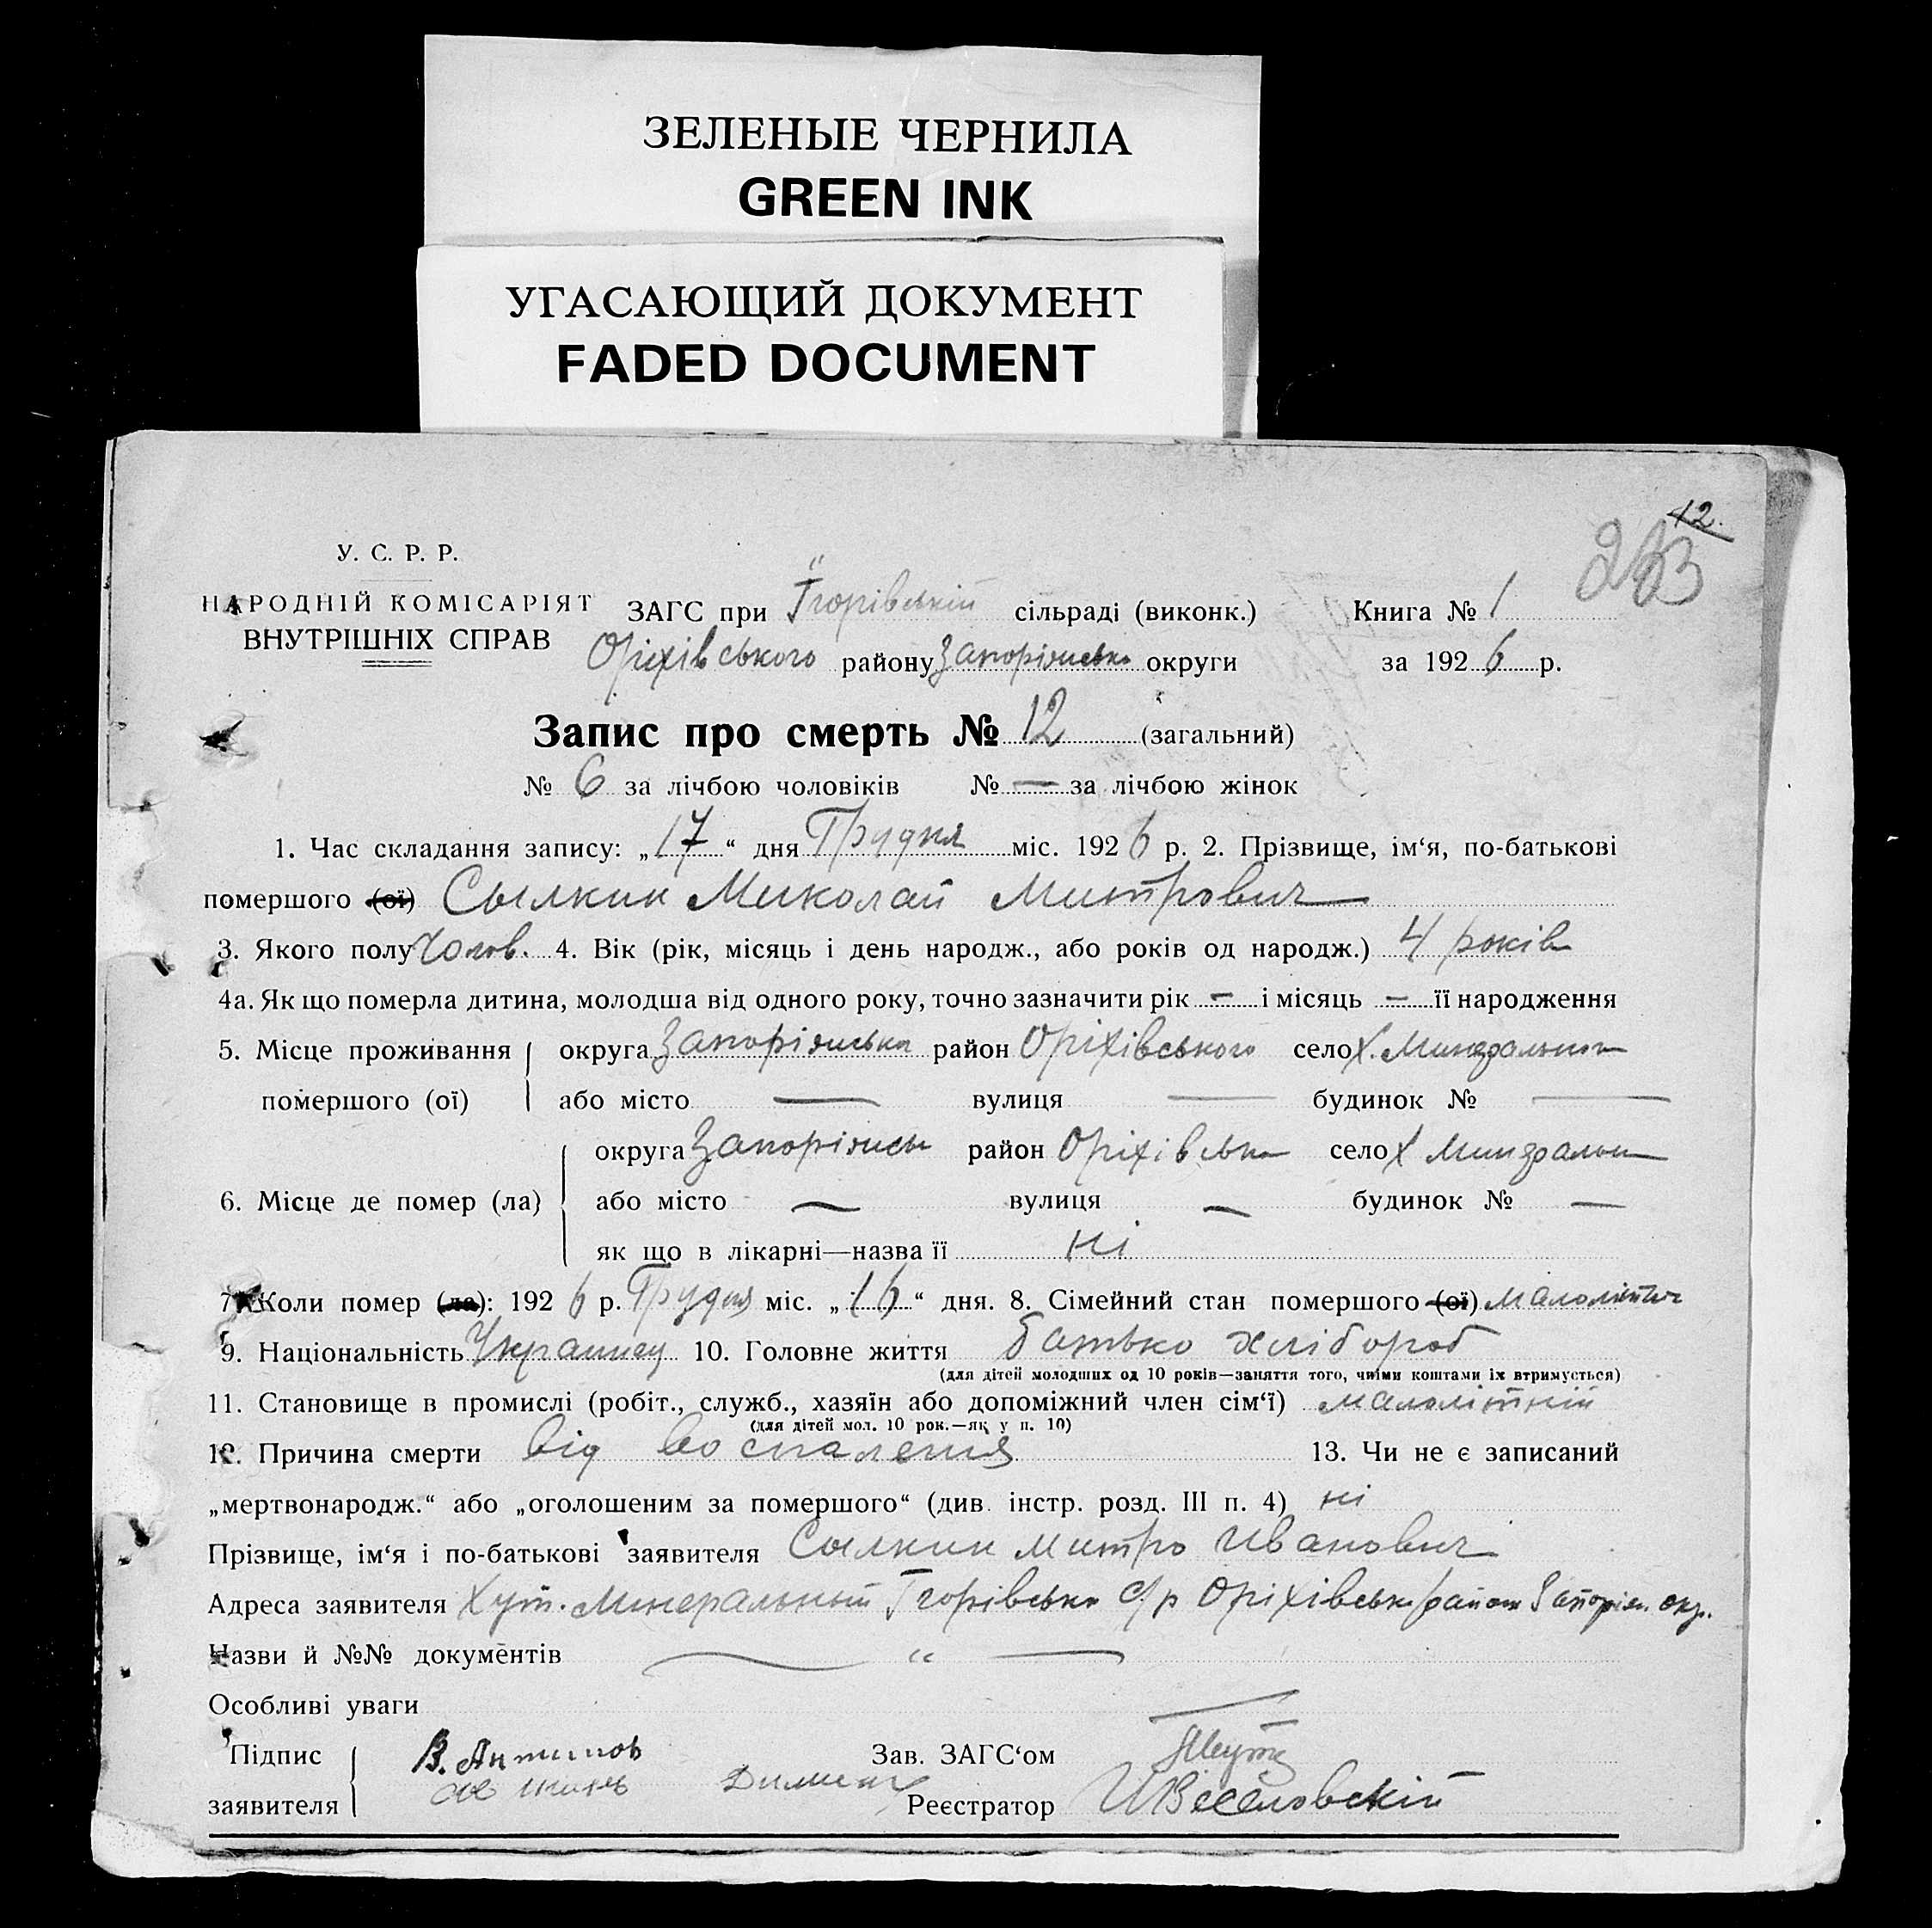 ЗЕЛЕНЫЕ ЧЕРНИЛА
GREEN INK
УГАСАЮЩИЙ ДОКУМЕНТ
FADED DOCUMENT
12.
У. С. Р. Р.
НАРОДНІЙ КОМІСАРІЯТ
ВНУТРІШНІХ СПРАВ
ЗАГС при Ігорівській сільраді (виконк.) Книга № 1
Оріхівського району Запоріжська округи за 1926 р.
Запис про смерть № 12 (загальний)
№ 6 за лічбою чоловіків № — за лічбою жінок
1. Час складання запису: „17“ дня Грудня міс. 1926 р. 2. Прізвище, ім‘я, по-батькові
помершого (ої) Сылкин Миколай Митрович
3. Якого полу Чолов. 4. Вік (рік, місяць і день народж., або років од народж.) 4 років
4а. Як що померла дитина, молодша від одного року, точно зазначити рік — і місяць — її народження
5. Місце проживання округа Запоріжська район Оріхівського село х. Минеральном
помершого (ої) або місто — вулиця — будинок № —
округа Запоріжськ район Оріхівськ село х Минеральн
6. Місце де помер (ла) або місто — вулиця — будинок № —
як що в лікарні—назва її ні
7. Коли помер (ла): 1926 р. Грудня міс. „16“ дня. 8. Сімейний стан помершого (ої) малолітн
9. Національність Украинец 10. Головне життя батько хлібороб
(для дітей молодших од 10 років—заняття того, чиїми коштами їх втримується)
11. Становище в промислі (робіт., служб., хазяїн або допоміжний член сім‘ї) малолітній
(для дітей мол. 10 рок.—як у п. 10)
12. Причина смерти від воспаления 13. Чи не є записаний
„мертвонародж.“ або „оголошеним за помершого“ (див. інстр. розд. III п. 4) ні
Прізвище, ім‘я і по-батькові заявителя Сылкин Митро Иванович
Адреса заявителя Хут. Минеральный Ігорівськ с/р Оріхівськ район Запоріж. окр.
Назви й №№ документів — „ —
Особливі уваги —
Підпис В. Антипов Зав. ЗАГС‘ом
заявителя Реєстратор ИВеселовский